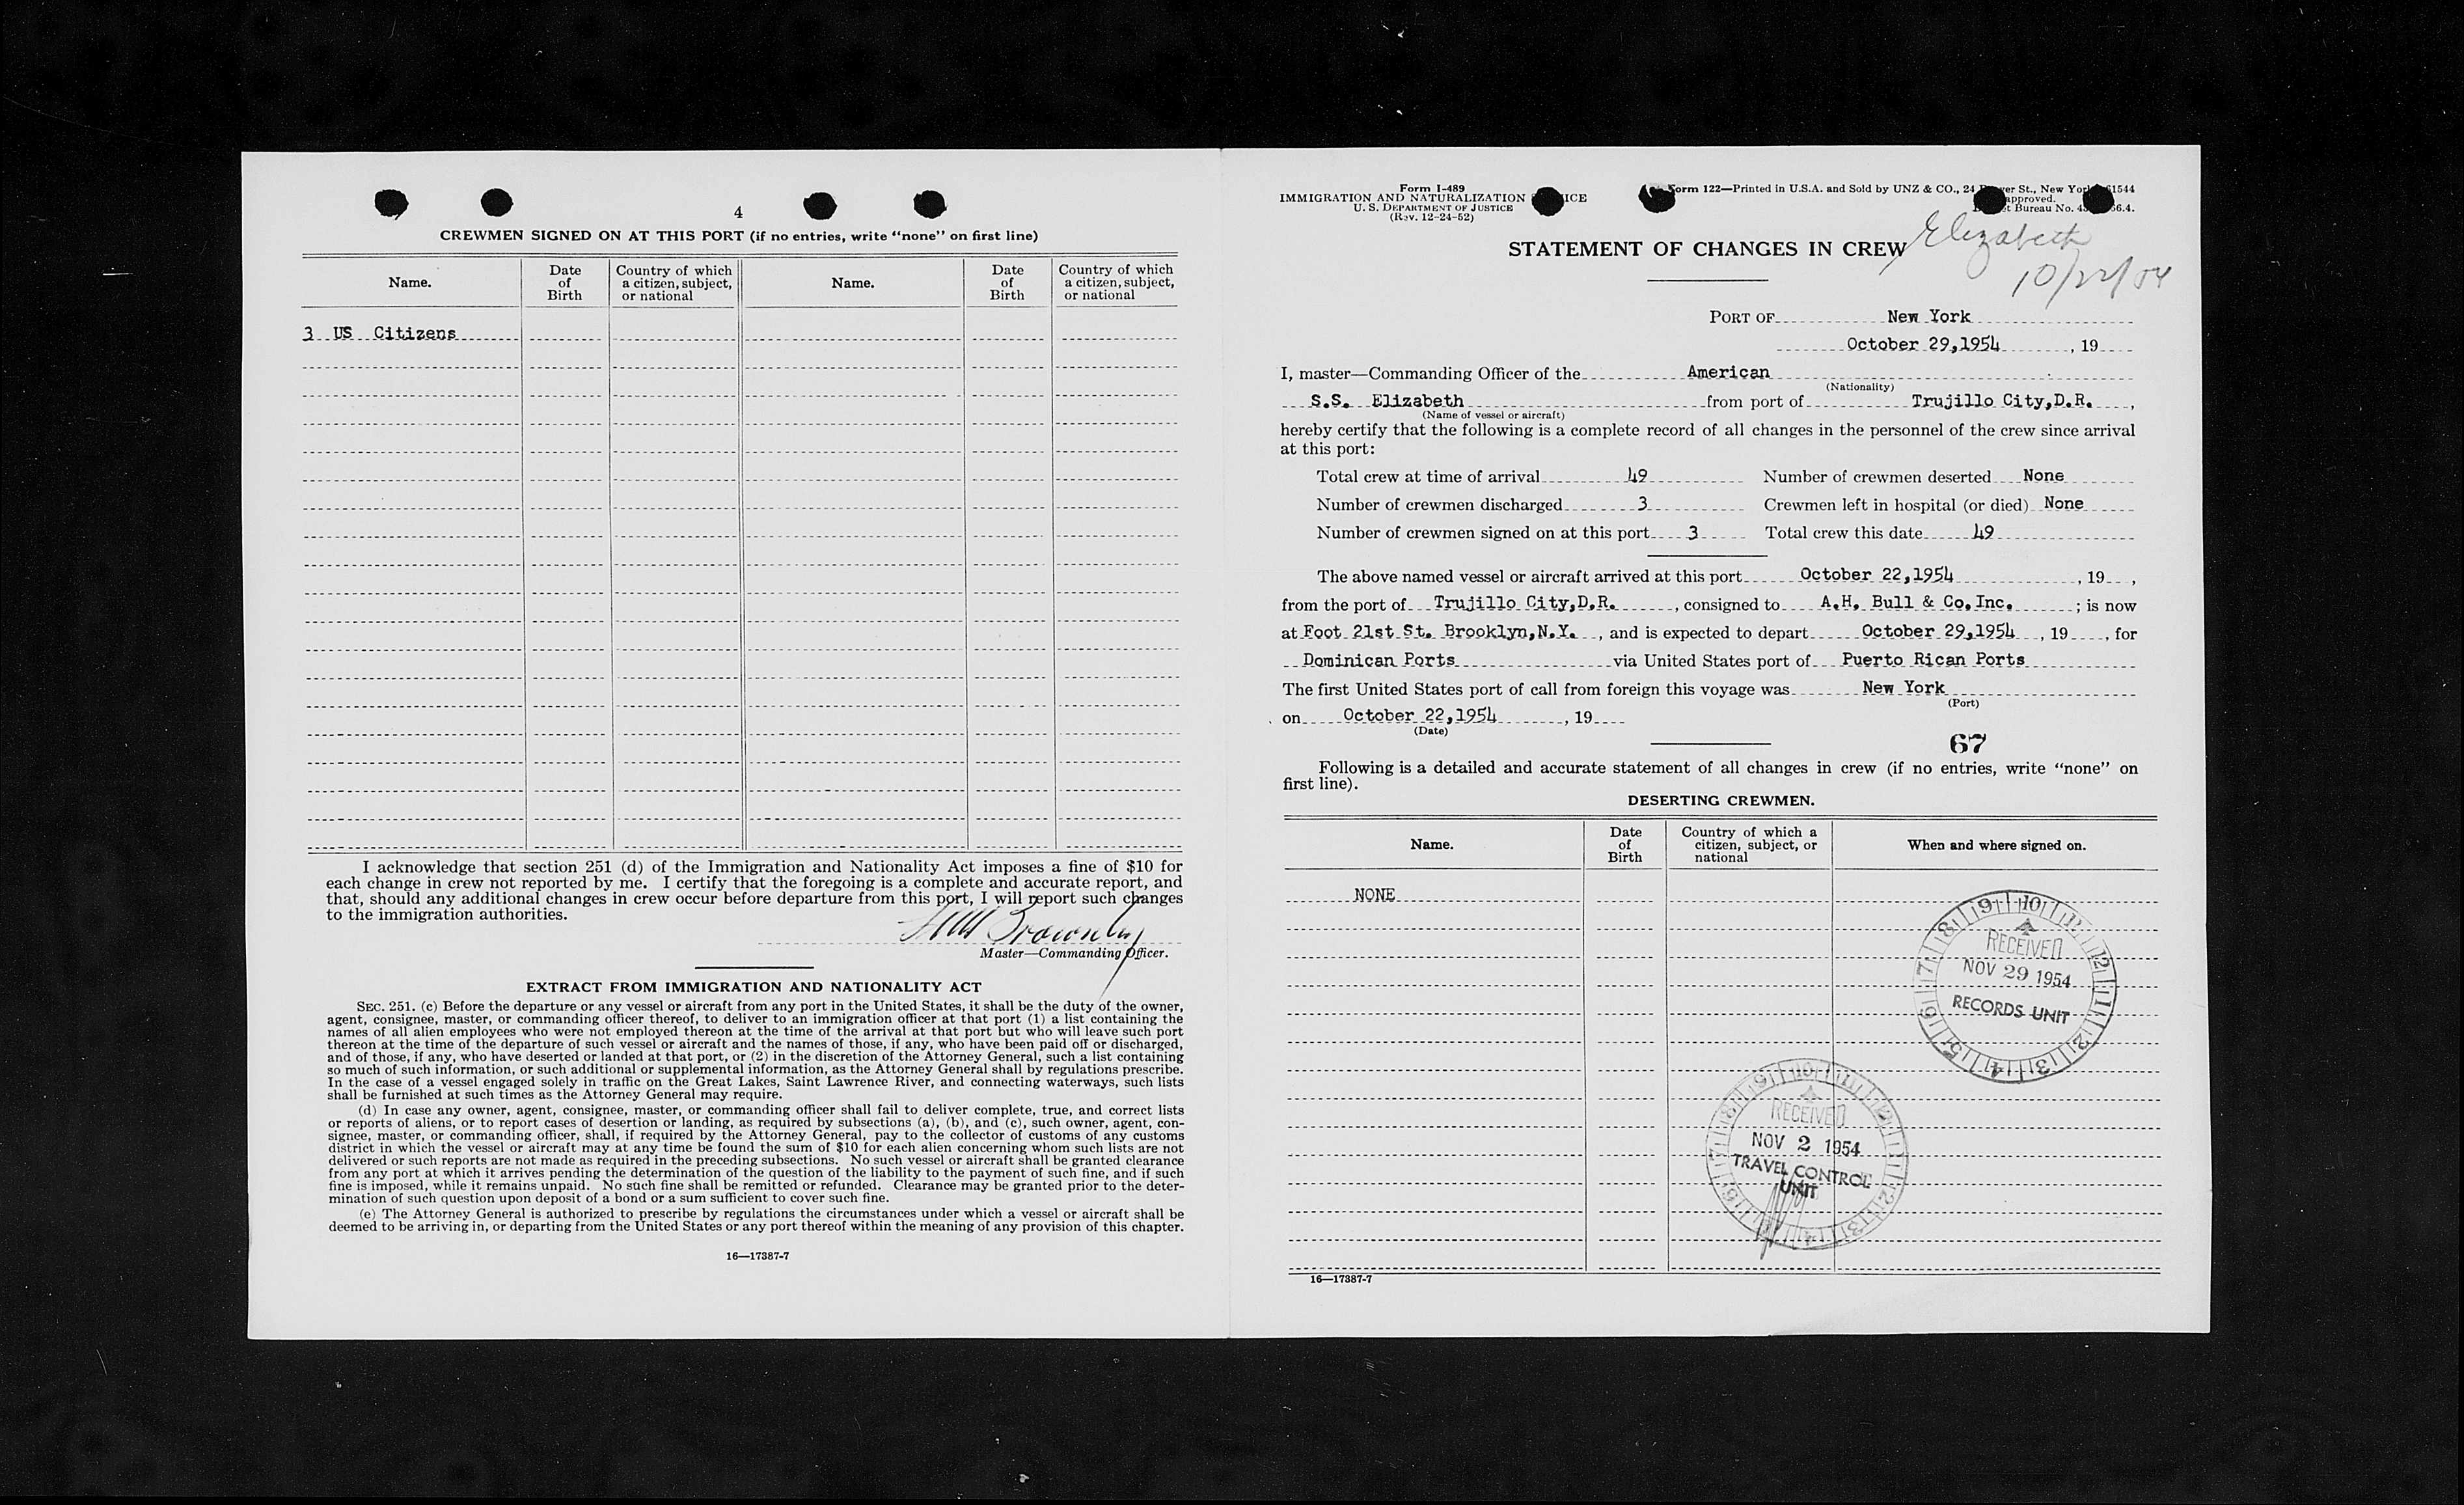 4
CREWMEN SIGNED ON AT THIS PORT (if no entries, write “none” on first line)
Name. Date of Birth Country of which a citizen, subject, or national Name. Date of Birth Country of which a citizen, subject, or national
3 US Citizens
I acknowledge that section 251 (d) of the Immigration and Nationality Act imposes a fine of $10 for
each change in crew not reported by me. I certify that the foregoing is a complete and accurate report, and
that, should any additional changes in crew occur before departure from this port, I will report such changes
to the immigration authorities.
Master—Commanding Officer.
EXTRACT FROM IMMIGRATION AND NATIONALITY ACT
SEC. 251. (c) Before the departure or any vessel or aircraft from any port in the United States, it shall be the duty of the owner,
agent, consignee, master, or commanding officer thereof, to deliver to an immigration officer at that port (1) a list containing the
names of all alien employees who were not employed thereon at the time of the arrival at that port but who will leave such port
thereon at the time of the departure of such vessel or aircraft and the names of those, if any, who have been paid off or discharged,
and of those, if any, who have deserted or landed at that port, or (2) in the discretion of the Attorney General, such a list containing
so much of such information, or such additional or supplemental information, as the Attorney General shall by regulations prescribe.
In the case of a vessel engaged solely in traffic on the Great Lakes, Saint Lawrence River, and connecting waterways, such lists
shall be furnished at such times as the Attorney General may require.
(d) In case any owner, agent, consignee, master, or commanding officer shall fail to deliver complete, true, and correct lists
or reports of aliens, or to report cases of desertion or landing, as required by subsections (a), (b), and (c), such owner, agent, con-
signee, master, or commanding officer, shall, if required by the Attorney General, pay to the collector of customs of any customs
district in which the vessel or aircraft may at any time be found the sum of $10 for each alien concerning whom such lists are not
delivered or such reports are not made as required in the preceding subsections. No such vessel or aircraft shall be granted clearance
from any port at which it arrives pending the determination of the question of the liability to the payment of such fine, and if such
fine is imposed, while it remains unpaid. No such fine shall be remitted or refunded. Clearance may be granted prior to the deter-
mination of such question upon deposit of a bond or a sum sufficient to cover such fine.
(e) The Attorney General is authorized to prescribe by regulations the circumstances under which a vessel or aircraft shall be
deemed to be arriving in, or departing from the United States or any port thereof within the meaning of any provision of this chapter.
16—17387-7
Form I-489
IMMIGRATION AND NATURALIZATION
U. S. DEPARTMENT OF JUSTICE
(Rev. 12-24-52)
Form 122—Printed in U.S.A. and Sold by UNZ & CO., 24 St., New York
approved.
Bureau No.
STATEMENT OF CHANGES IN CREW
Elizabeth
10/22/54
PORT OF New York
October 29,1954 , 19
I, master—Commanding Officer of the American
(Nationality)
S.S. Elizabeth from port of Trujillo City,D.R. ,
(Name of vessel or aircraft)
hereby certify that the following is a complete record of all changes in the personnel of the crew since arrival
at this port:
Total crew at time of arrival 49 Number of crewmen deserted None
Number of crewmen discharged 3 Crewmen left in hospital (or died) None
Number of crewmen signed on at this port 3 Total crew this date 49
The above named vessel or aircraft arrived at this port October 22,1954 , 19 ,
from the port of Trujillo City,D.R. , consigned to A.H. Bull & Co.Inc. ; is now
at Foot 21st St. Brooklyn,N.Y. , and is expected to depart October 29,1954 , 19 , for
Dominican Ports via United States port of Puerto Rican Ports
The first United States port of call from foreign this voyage was New York
(Port)
on October 22,1954 , 19
(Date)
67
Following is a detailed and accurate statement of all changes in crew (if no entries, write “none” on
first line).
DESERTING CREWMEN.
Name. Date of Birth Country of which a citizen, subject, or national When and where signed on.
NONE
9 10 11 12 1 2 3 4 5 6 7 8
RECEIVED
NOV 29 1954
RECORDS UNIT
9 10 11 12 1 2 3 4 5 6 7 8
RECEIVED
NOV 2 1954
TRAVEL CONTROL
UNIT
16—17387-7